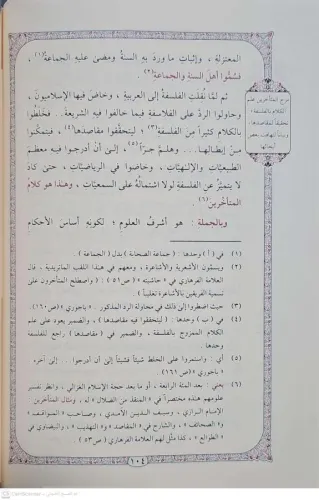 المعتزلةِ ، وإثباتِ ما وردَ بهِ السنةُ ومضىٰ عليهِ الجماعةُ(١) ،
فسُمُّوا أهلَ السنةِ والجماعةِ(٢) .
ثم لمَّا نُقلَتِ الفلسفةُ إلى العربيةِ ، وخاضَ فيها الإسلاميون ،
وحاولوا الردَّ على الفلاسفةِ فيما خالفوا فيهِ الشريعةَ . . فخلَطُوا
بالكلامِ كثيراً منَ الفلسفةِ(٣) ؛ ليتحقَّقوا مقاصدَها(٤) ، فيتمكَّنوا
منْ إبطالِها . . وهلمَّ جرّاً(٥) ، إلىٰ أنْ أدرجوا فيهِ معظمَ
الطبيعيَّاتِ والإلٰهيَّاتِ ، وخاضوا في الرياضيَّاتِ ، حتىٰ كادَ
لا يتميَّزُ عنِ الفلسفةِ لولا اشتمالُهُ على السمعيَّاتِ ، وهٰذا هو كلامُ
المتأخِّرينَ(٦) .
وبالجملةِ : هو أشرفُ العلومِ ؛ لكونِهِ أساسَ الأحكامِ
مزج المتأخرين علم
الكلام بالفلسفة ؛
تحقيقاً لمقاصدها ،
(١) في ( أ ) وحدها : ( جماعة الصحابة ) بدل ( الجماعة ) .
(٢) ويسمَّون الأشعرية والأشاعرة ، ومعهم في هذا اللقب الماتريدية . قال
العلامة الفرهاري في « حاشيته » ( ص ٥١ ) : ( واصطلح المتأخرون على
تسمية الفريقين بالأشاعرة تغليباً )
(٣) حيث اضطروا إلى ذلك في محاولة الرد المذكور . « باجوري » ( ص ١٦٠ ) .
(٤) في ( ب ) وحدها : ( ليتحققوا فيه مقاصدها ) ، والضمير يعود على علم
الكلام الممزوج بالفلسفة ، والضمير في ( مقاصدها ) راجع للفلسفة
وحدها .
(٥) أي : واستمروا على الخلط شيئاً فشيئاً إلى أن أدرجوا . . . إلى آخره .
« باجوري » ( ص ١٦١ ) .
(٦) يعني : بعد المئة الرابعة ، أو ما بعد حجة الإسلام الغزالي ، وانظر تفسير
علومهم هذه مختصراً في « المنقذ من الضلال » له ، ومثال المتأخرين
الإمام الرازي ، وسيف الدين الآمدي ، وصاحب « المواقف »
و« الصحائف » ، والشارح في « المقاصد » و« التهذيب » ، والبيضاوي في
« الطوالع » ، كذا مثَّل لهم العلامة الفرهاري ( ص ٥٣ )
١٠٤
CamScanner